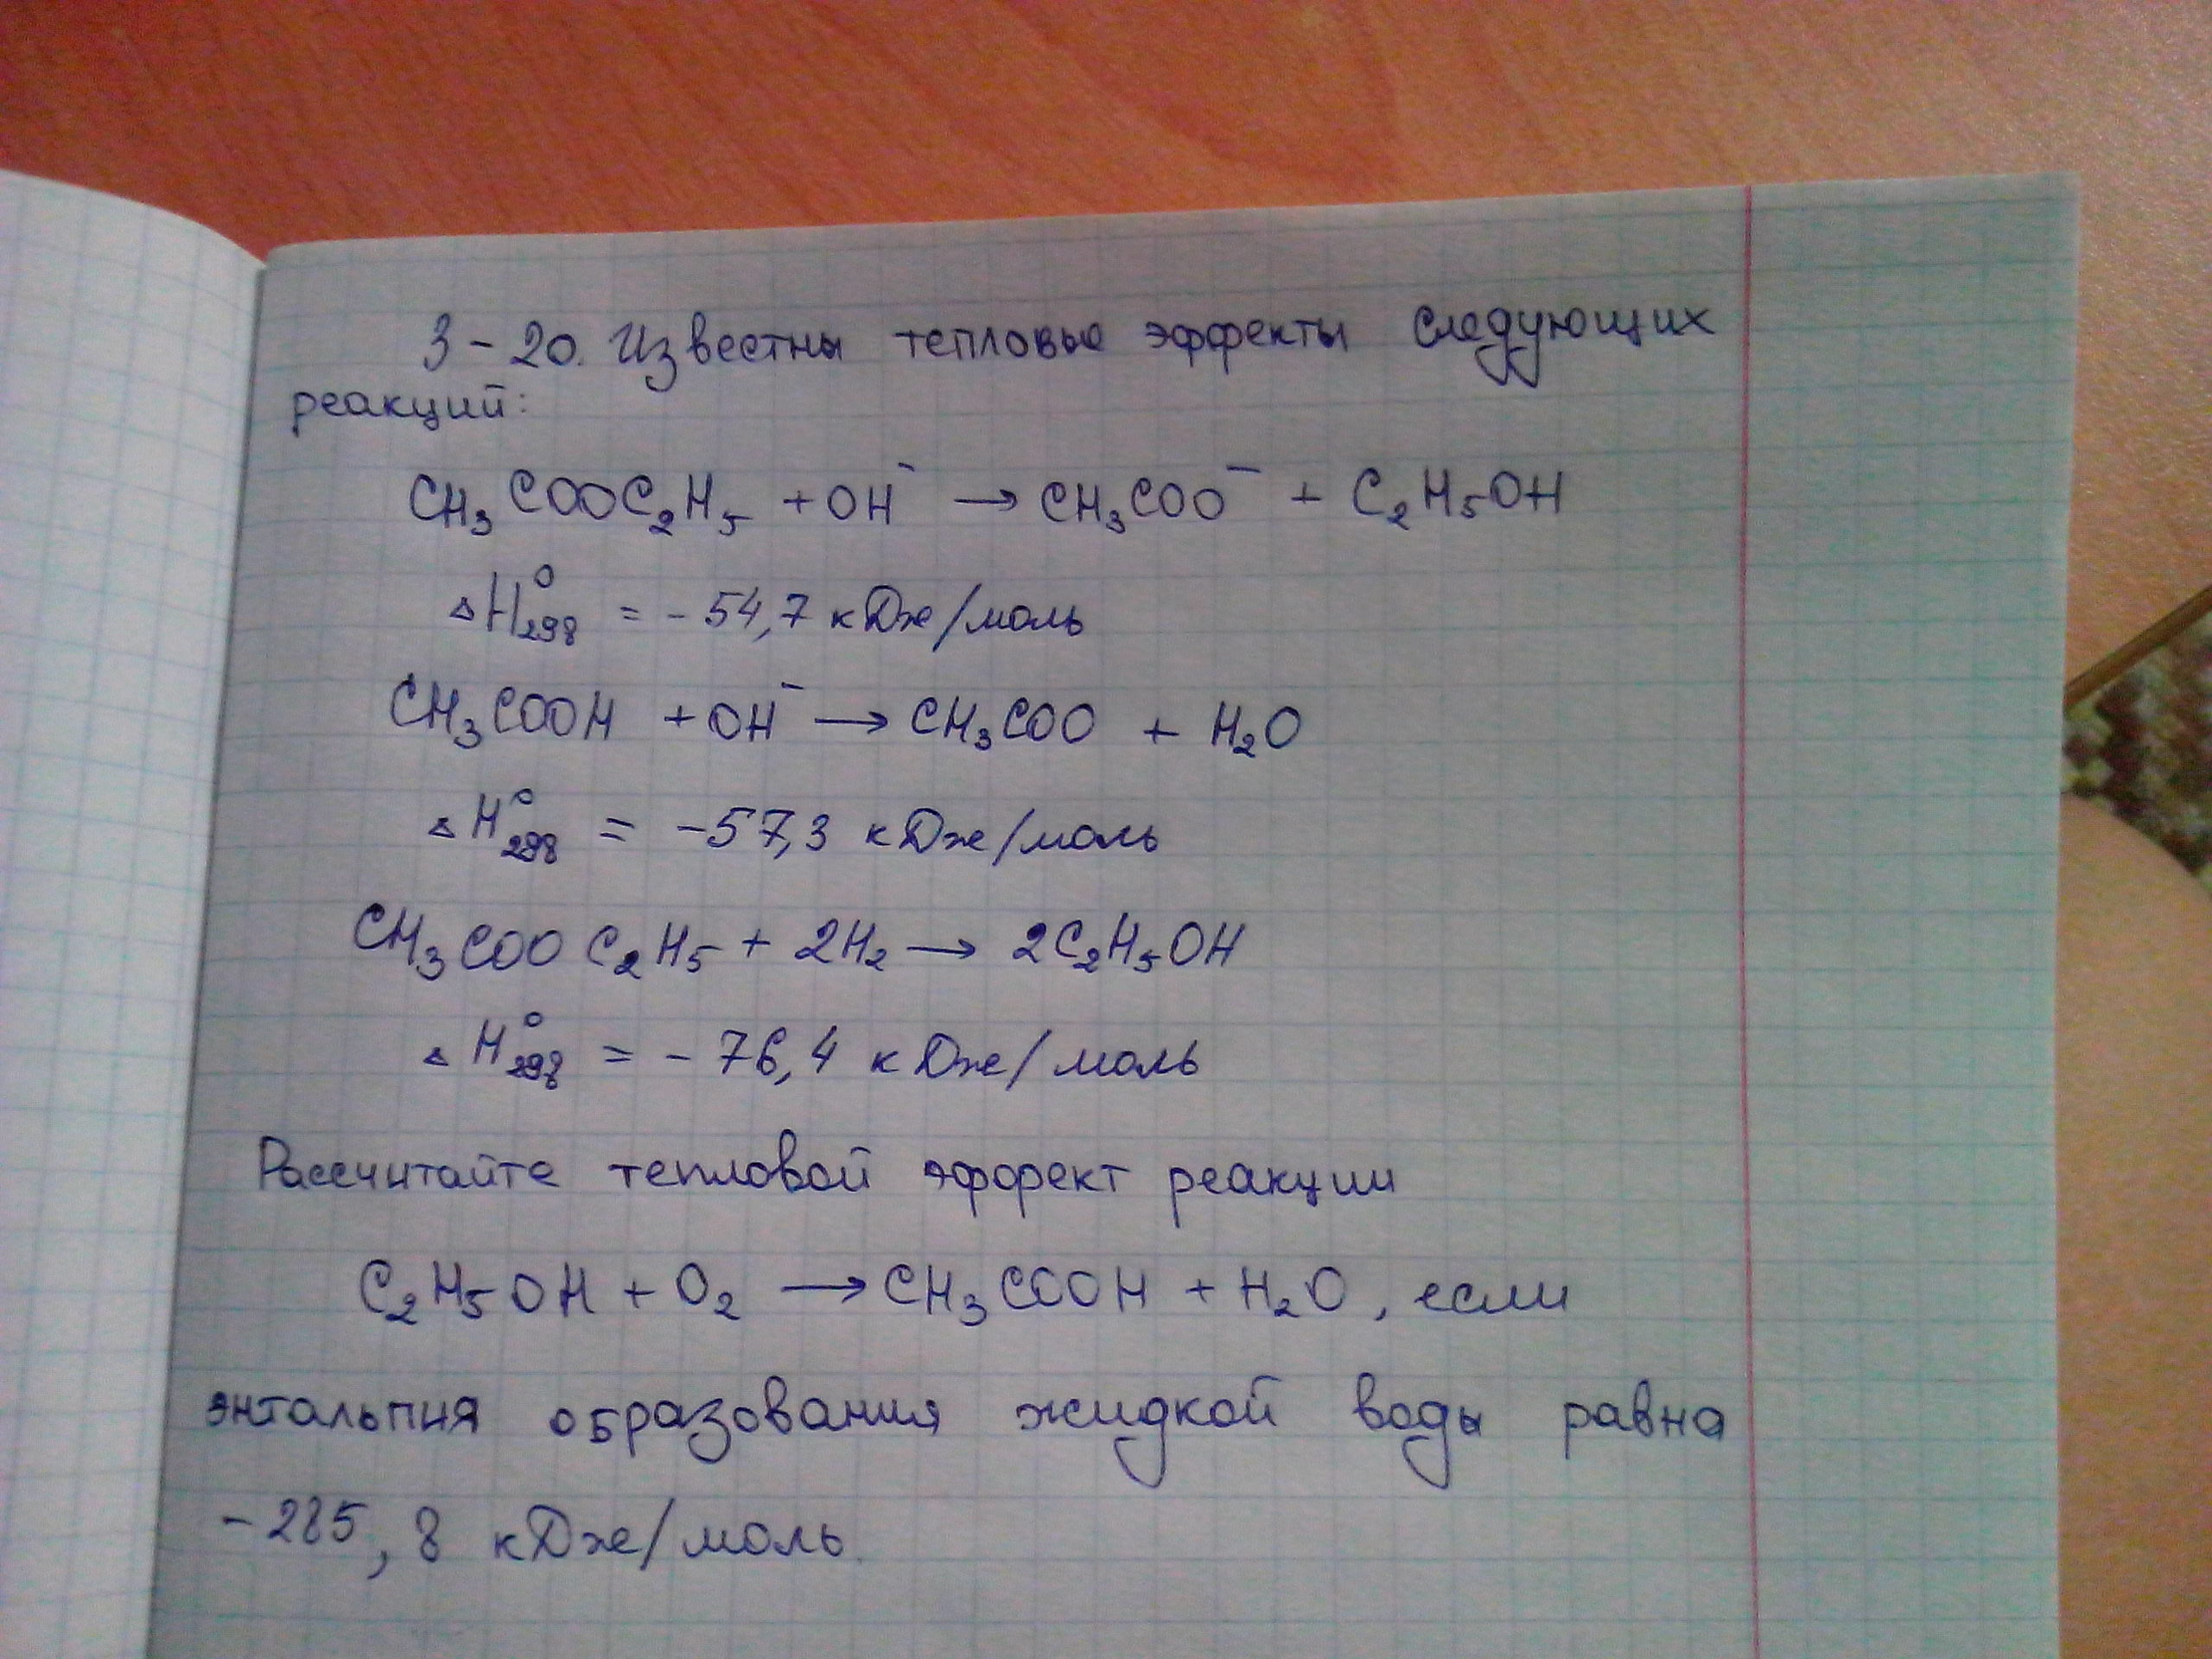 3-20. Известны тепловые эффекты следующих
реакций:
CH₃COOC₂H₅ + OH⁻ → CH₃COO⁻ + C₂H₅OH
ΔH°₂₉₈ = -54,7 кДж/моль
CH₃COOH + OH⁻ → CH₃COO + H₂O
ΔH°₂₉₈ = -57,3 кДж/моль
CH₃COOC₂H₅ + 2H₂ → 2C₂H₅OH
ΔH°₂₉₈ = -76,4 кДж/моль
Рассчитайте тепловой эффект реакции
C₂H₅OH + O₂ → CH₃COOH + H₂O, если
энтальпия образования жидкой воды равна
-285,8 кДж/моль.